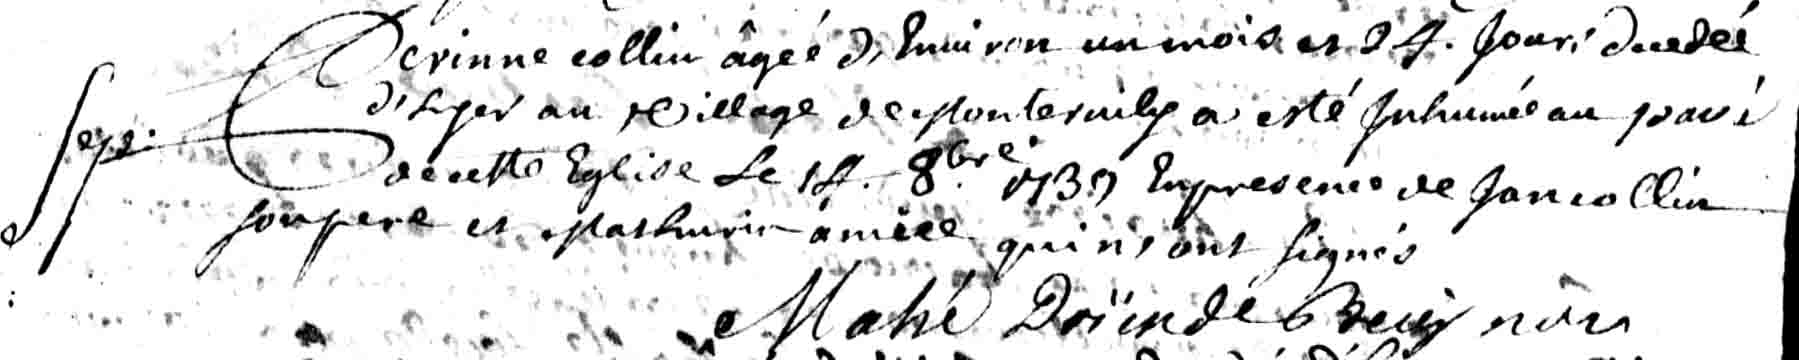 Perinne collin âgéé d'Environ un mois et 24. Jours decedéé
d'hyer au village de Monteruily a esté Inhumée au pavé
sep. de cette Eglise Le 14. 8bre 1737 En presence de Jan collin
son pere et Mathurin amice qui n'ont signés
Mahé Doïen de